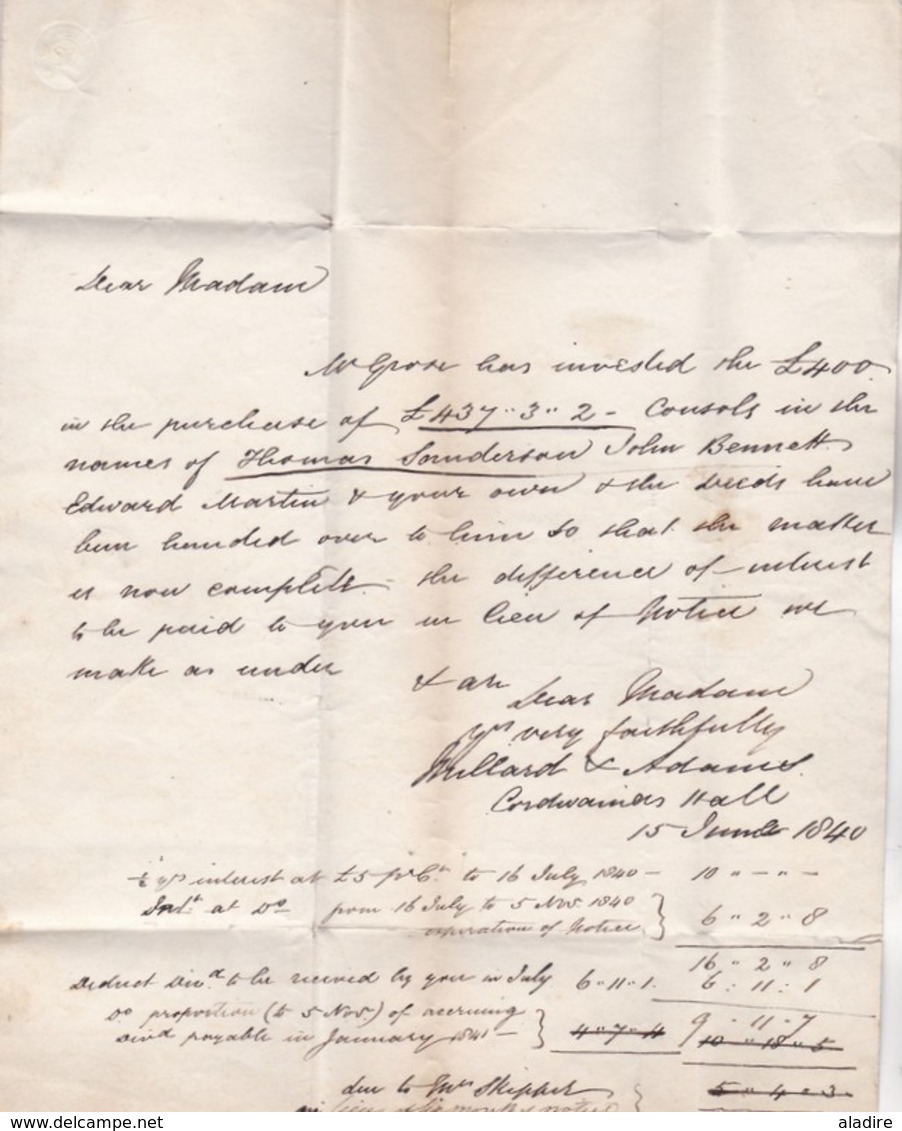 Dear Madam
Mr Grose has invested the £400
in the purchase of £437" 3" 2 - Consols in the
names of Thomas Saunderson John Bennett
Edward Martin & your own & the deeds have
been handed over to him so that the matter
is now complete - the difference of interest
to be paid to you in lieu of Notice we
make as under
& are
Dear Madam
Yrs very faithfully
Millard & Adams
Cordwainers Hall
15 June 1840
½ yrs interest at £5 pr Ct to 16 July 1840 - 10 " - " -
Intt at Do from 16 July to 5 Nov. 1840
expiration of Notice } 6 " 2 " 8
16 " 2 " 8
Deduct Divd to be received by you in July 6 " 11 " 1 6 : 11 : 1
Do proportion (to 5 Nov.) of accruing 9 - 11 - 7
divd payable in January 1841 - } 4 " 7 " 4 10 " 18 " 5
due to Mrs Skipper } 5 " 4 " 3
in lieu of six months notice
delcampe.net
aladire